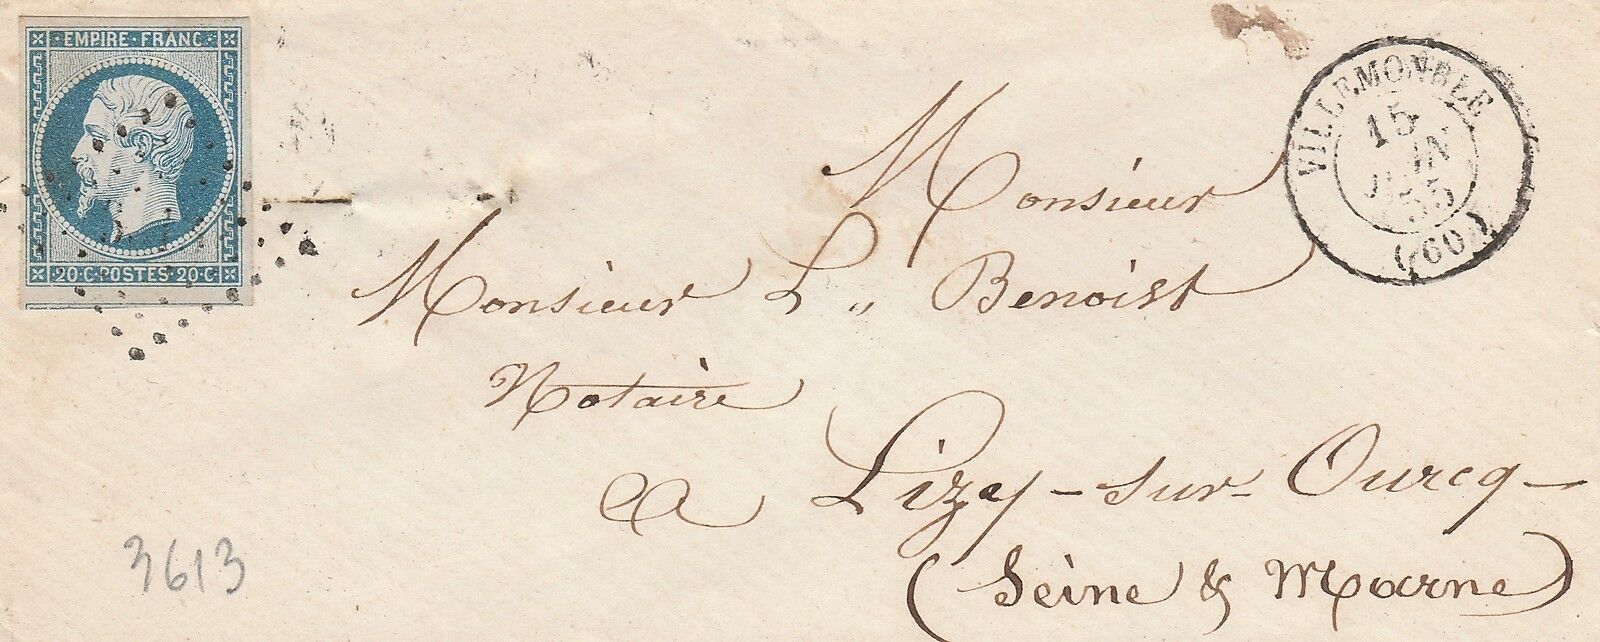 EMPIRE FRANC
20·C·POSTES·20·C
VILLEMONBLE
15
JUIN
55
(60)
Monsieur
Monsieur L" Benoist
Notaire
a Lizy-sur-Ourcq-
(Seine & Marne)
3613